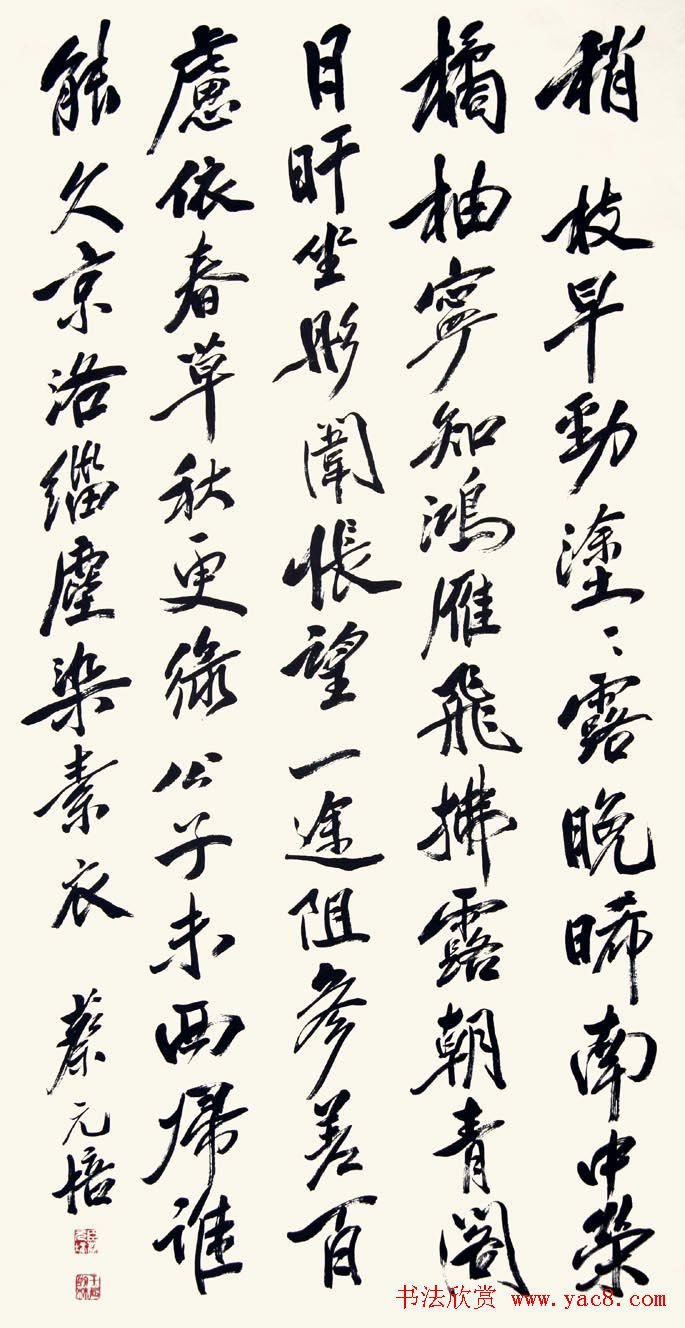 稍枝早勁塗〻露晚晞南中榮
橘柚寧知鴻雁飛拂露朝青閣
日旰坐彤闈悵望一途阻參差百
慮依春草秋更綠公子未西歸誰
能久京洛緇塵染素衣
蔡元培
书法欣赏 www.yac8.com